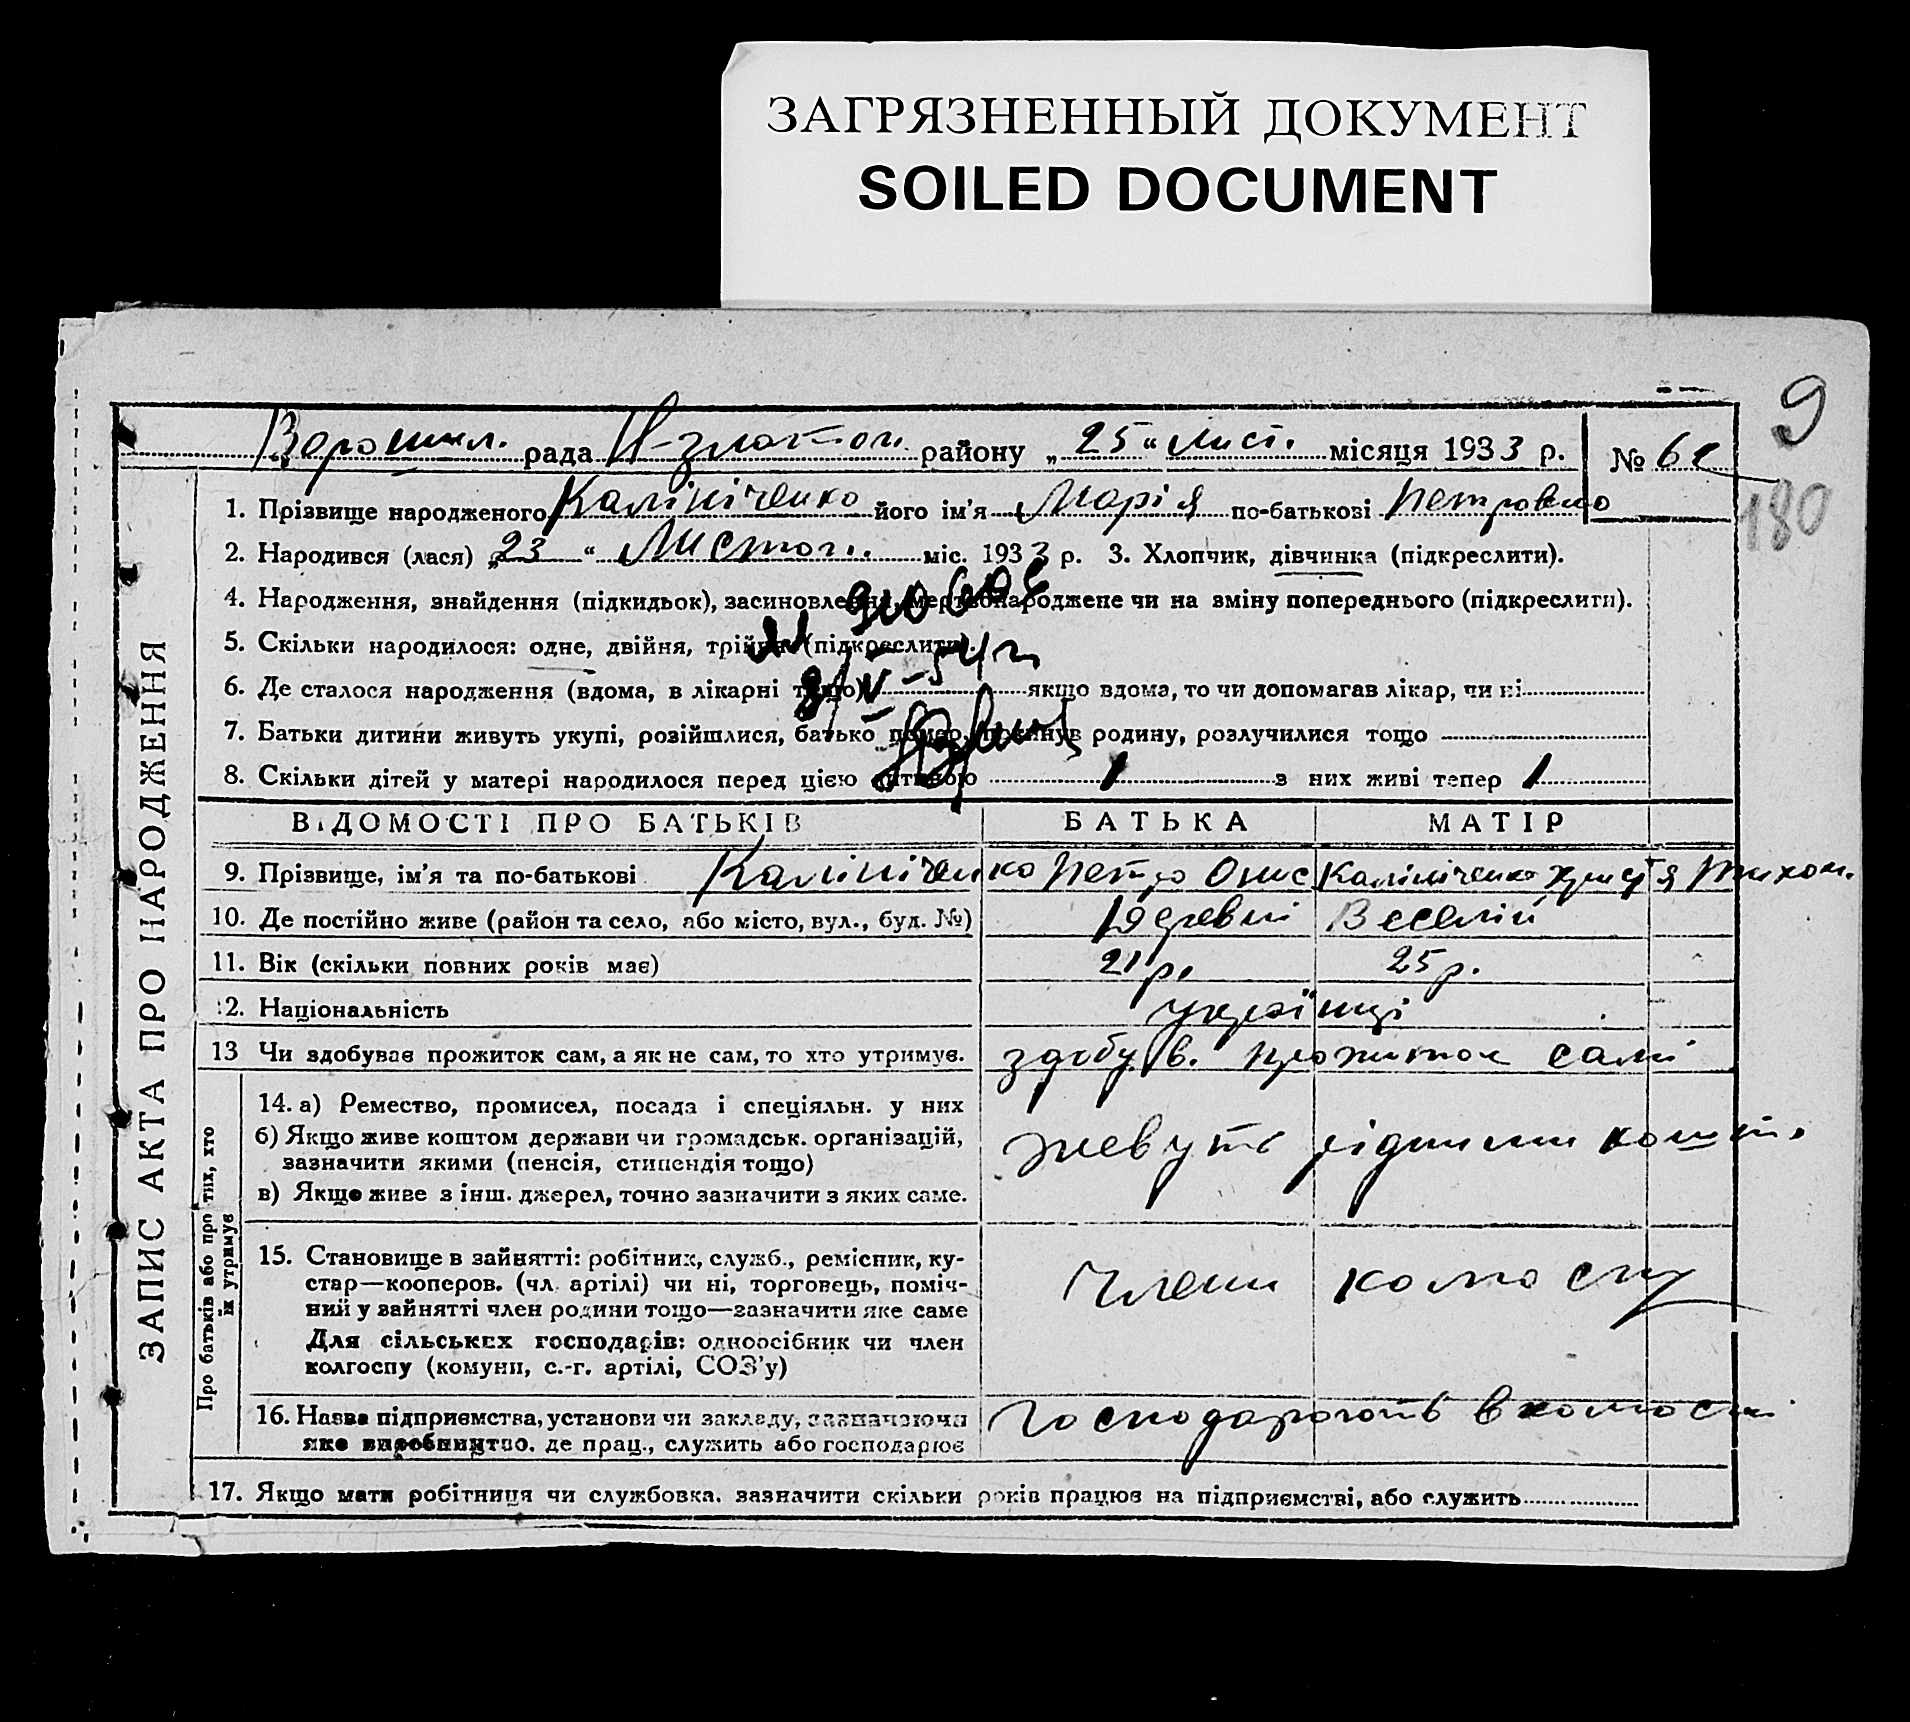 ЗАГРЯЗНЕННЫЙ ДОКУМЕНТ
SOILED DOCUMENT
9
Ворошил. рада Н-златоп. району „25“ Лист. місяця 1933 р. №
180
1. Прізвище народженого Калініченко його ім'я Марія по-батькові Петровно
2. Народився (лася) „23“ Листоп. міс. 1933 р. 3. Хлопчик, дівчинка (підкреслити).
4. Народження, знайдення (підкидьок), засиновлення, мертвонароджене чи на зміну попереднього (підкреслити).
5. Скільки народилося: одне, двійня, трійня (підкреслити).
6. Де сталося народження (вдома, в лікарні тощо) якщо вдома, то чи допомагав лікар, чи ні
7. Батьки дитини живуть укупі, розійшлися, батько помер, покинув родину, розлучилися тощо
8. Скільки дітей у матері народилося перед цією дитиною 1 з них живі тепер 1
ВІДОМОСТІ ПРО БАТЬКІВ БАТЬКА МАТІР
9. Прізвище, ім'я та по-батькові Калініченко Петро Онис Калініченко Христя Тихон.
10. Де постійно живе (район та село, або місто, вул., буд. №) Веселій
11. Вік (скільки повних років має) 21 р. 25 р.
12. Національність українці
13 Чи здобуває прожиток сам, а як не сам, то хто утримує. здобув. прожиток самі
Про батьків або про тих, хто їх утримує
14. а) Ремество, промисел, посада і спеціяльн. у них
б) Якщо живе коштом держави чи громадськ. організацій,
зазначити якими (пенсія, стипендія тощо)
в) Якщо живе з інш. джерел, точно зазначити з яких саме.
живуть рідними кошт.
15. Становище в зайнятті: робітник, служб., ремісник, ку-
стар—кооперов. (чл. артілі) чи ні, торговець, поміч-
ний у зайнятті член родини тощо—зазначити яке саме
Для сільських господарів: одноосібник чи член
колгоспу (комуни, с.-г. артілі, СОЗ'у)
Члени колгоспу
16. Назва підприємства, установи чи закладу, зазначаючи
яке виробництво, де прац., служить або господарює
Господарюють в колгоспі
17. Якщо мати робітниця чи службовка, зазначити скільки років працює на підприємстві, або служить
ЗАПИС АКТА ПРО НАРОДЖЕННЯ